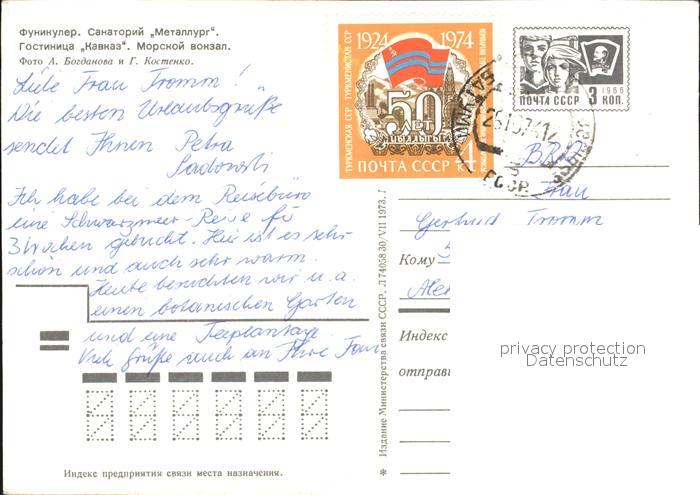 Фуникулер. Санаторий „Металлург".
Гостиница „Кавказ". Морской вокзал.
Фото А. Богданова и Г. Костенко.
Liebe Frau Fromm!
Die besten Urlaubsgrüße
sendet Ihnen Petra
Sadowski
Ich habe bei dem Reisebüro
eine Schwarzmeer-Reise fü
3 Wochen gebucht. Hier ist es sehr
schön und auch sehr warm.
Heute besichten wir u. a.
einen botanischen Garten
und eine Teeplantage.
Viele Grüße auch an Ihre Fam
Индекс предприятия связи места назначения.
Издание Министерства связи СССР. Л 74058 30/VII 1973.
*
1924 1974
ТУРКМЕНСКАЯ ССР · ТУРКМЕНИСТАН ССР
50 лет
ПОЧТА СССР 4 К
ПОЧТА СССР 3 КОП.
1966
BRD
Frau
Gertrud Fromm
Кому
Индекс
отправи
privacy protection
Datenschutz